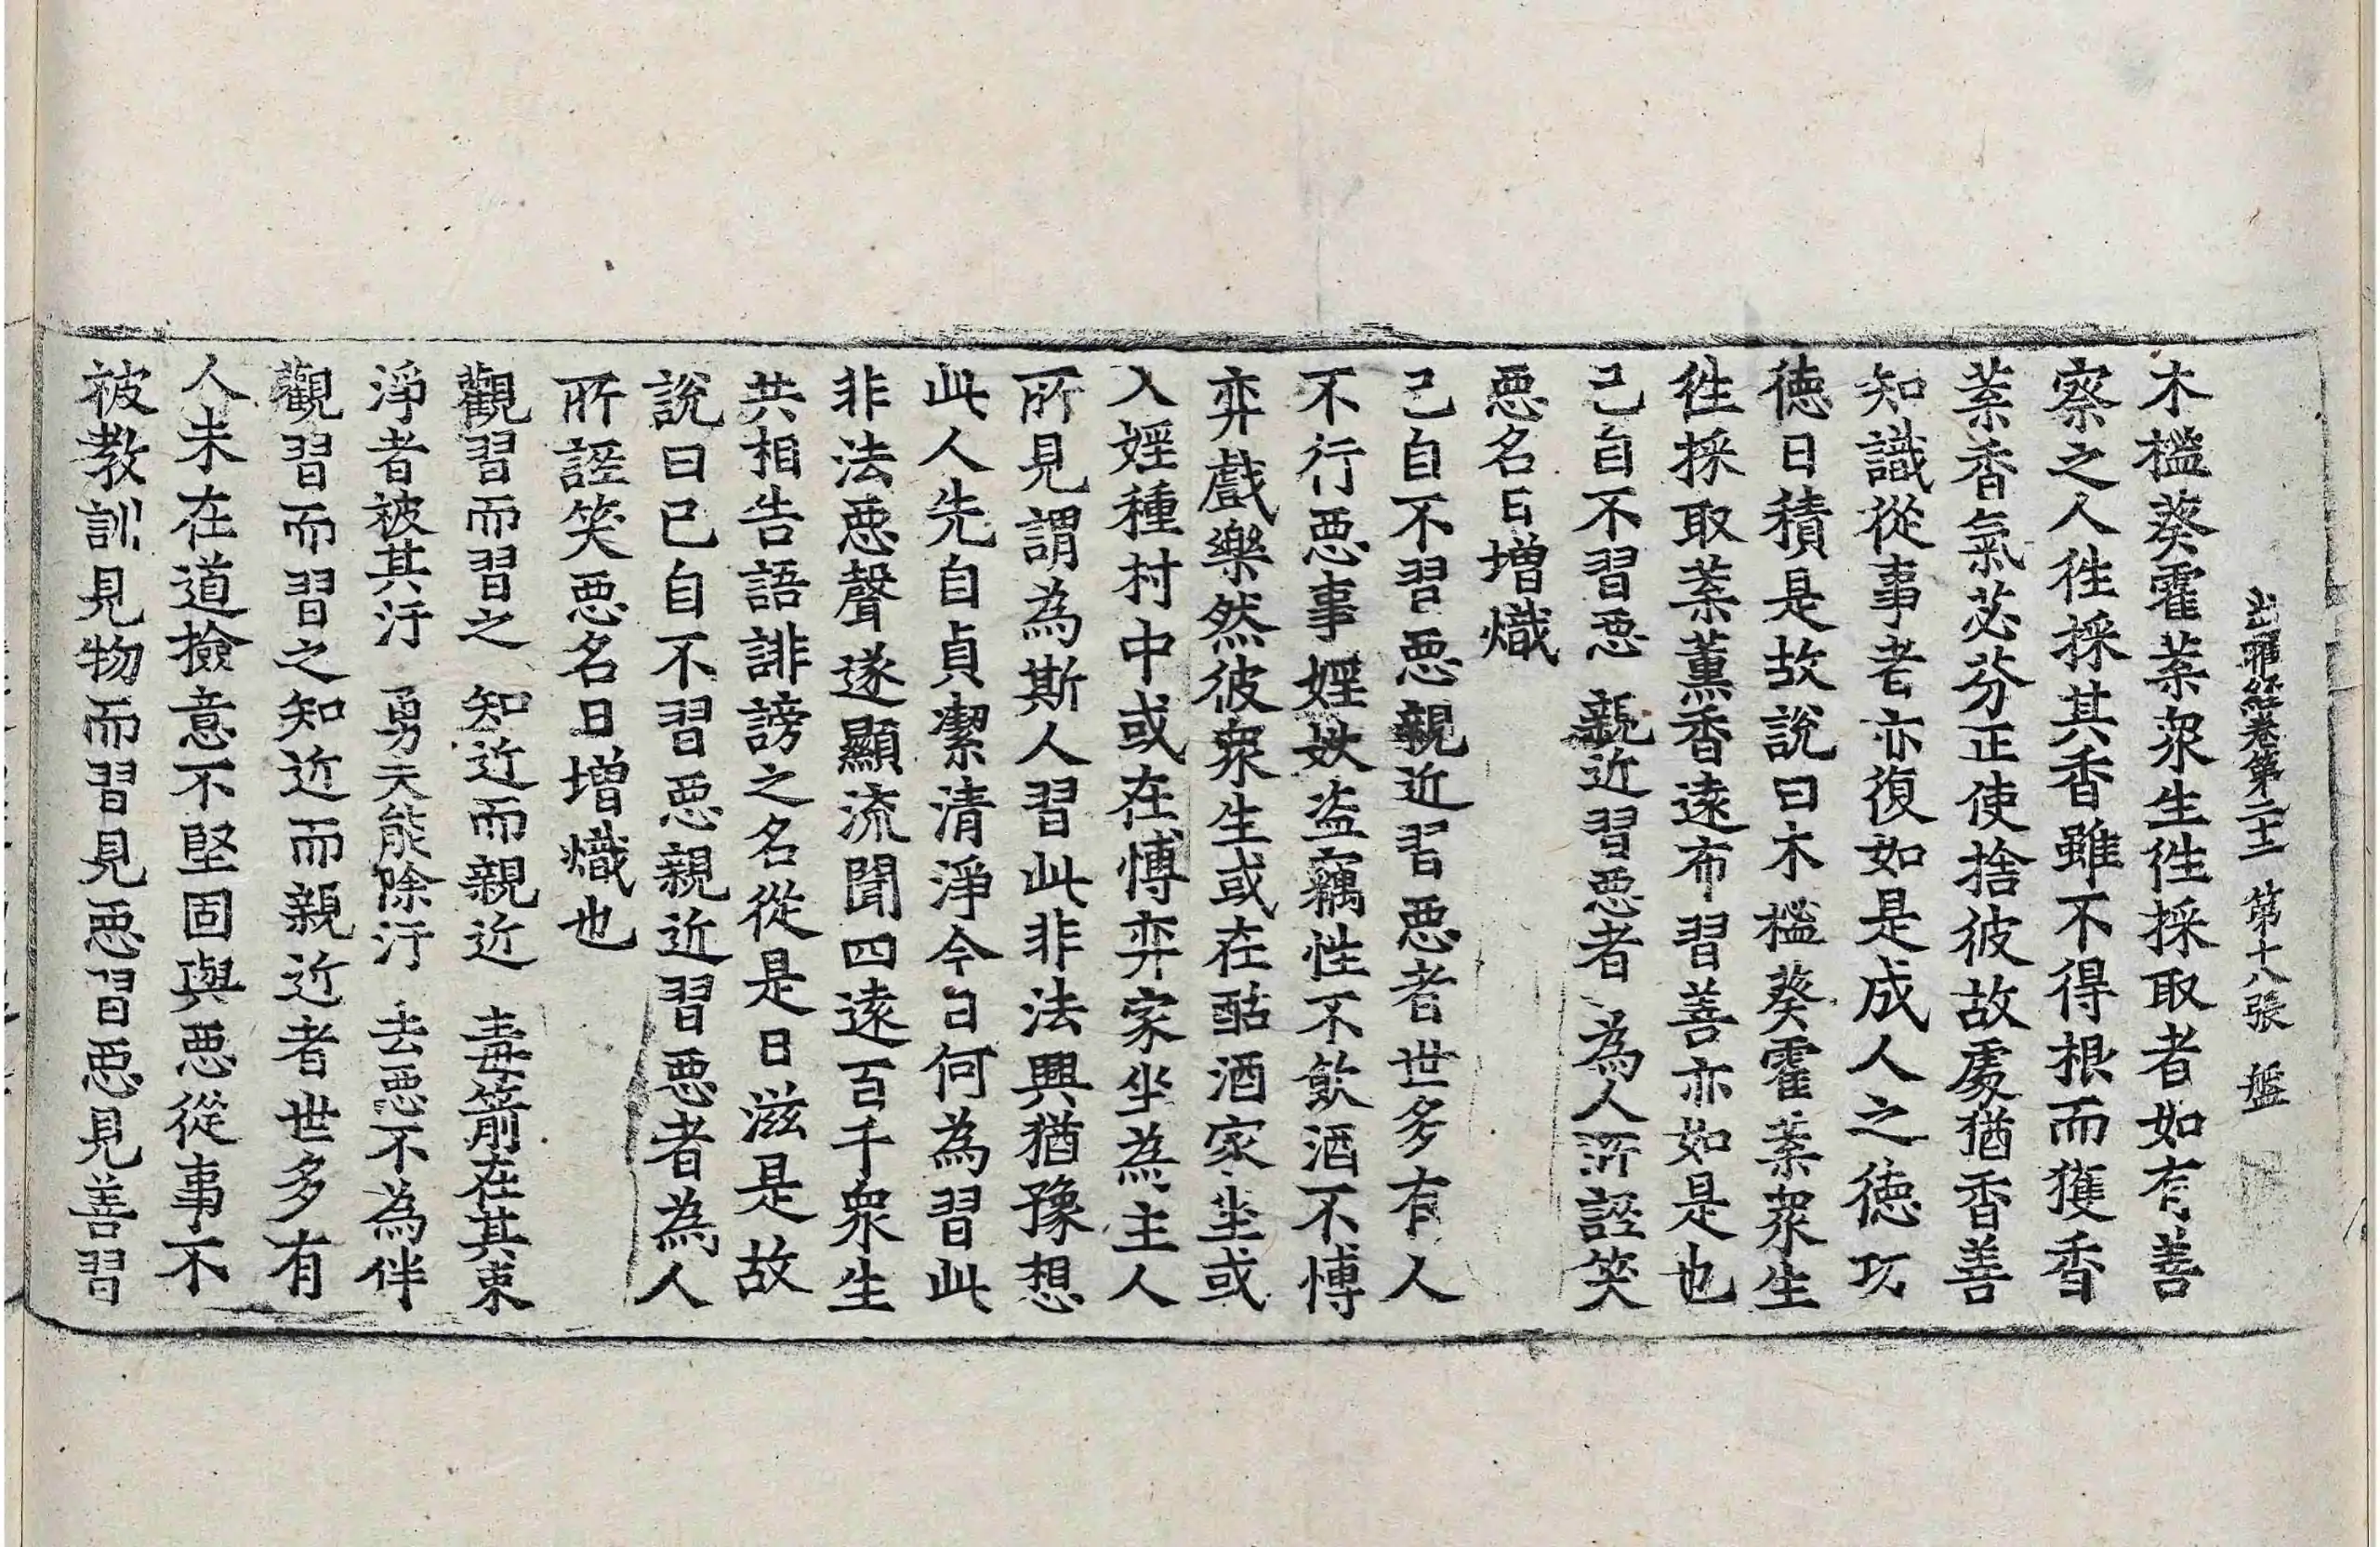 出曜経卷第二十一 第十八張 盤
木榓葵霍葉衆生徃採取者如有善
察之人徃採其香雖不得根而獲香
葉香氣苾芬正使捨彼故處猶香善
知識從事者亦復如是成人之德功
德日積是故說曰木榓葵霍葉衆生
徃採取葉薰香遠布習善亦如是也
己自不習惡 親近習惡者 為人所誣笑
惡名日增熾
己自不習惡親近習惡者世多有人
不行惡事婬妷盗竊性不飲酒不博
弈戲樂然彼衆生或在酤酒家坐或
入婬種村中或在博弈家坐為主人
所見謂為斯人習此非法興猶豫想
此人先自貞潔清淨今日何為習此
非法惡聲遂顯流聞四遠百千衆生
共相告語誹謗之名從是日滋是故
說曰已自不習惡親近習惡者為人
所誣笑惡名日增熾也
觀習而習之 知近而親近 毒箭在其束
淨者被其汙 勇夫能除汙 去惡不為伴
觀習而習之知近而親近者世多有
人未在道撿意不堅固與惡從事不
被教訓見物而習見惡習惡見善習